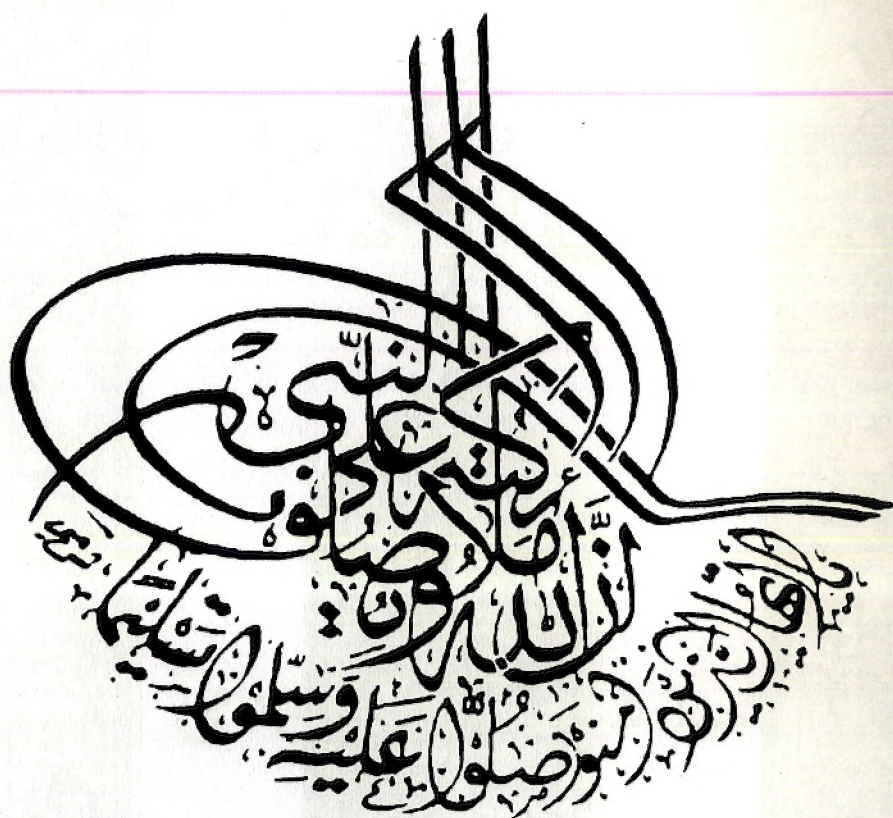 إِنَّ اللهَ وَمَلَائِكَتَهُ يُصَلُّونَ عَلَى النَّبِيِّ
يَا أَيُّهَا الَّذِينَ آمَنُوا صَلُّوا عَلَيْهِ وَسَلِّمُوا تَسْلِيمًا